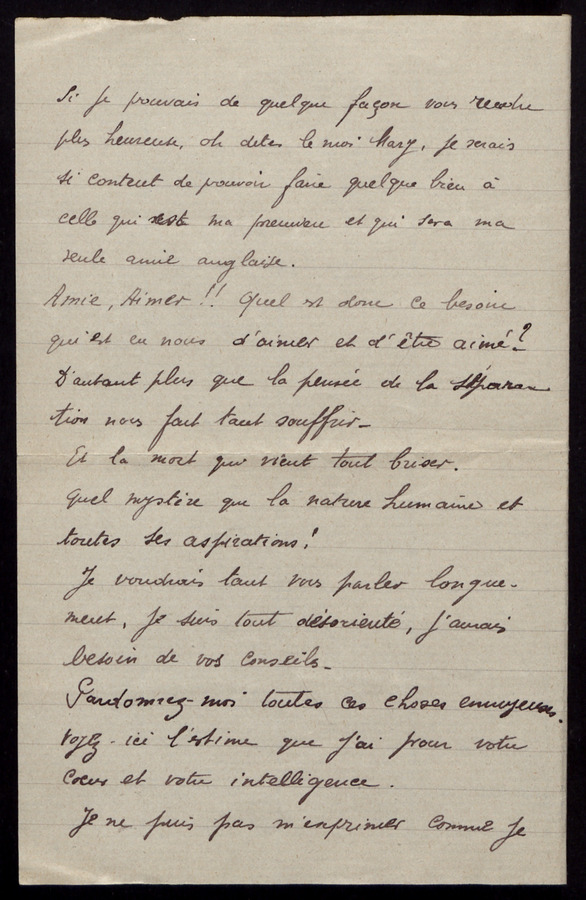 Si je pouvais de quelque façon vous rendre
plus heureuse, oh dites le moi Mary, je serais
si content de pouvoir faire quelque bien à
celle qui est ma première et qui sera ma
seule amie anglaise.
Amie, Aimer !! Quel est donc ce besoin
qui est en nous d'aimer et d'être aimé ?
D'autant plus que la pensée de la sépara-
tion nous fait tant souffrir -
Et la mort qui vient tout briser.
Quel mystère que la nature humaine et
toutes ses aspirations !
Je voudrais tant vous parler longue-
ment, je suis tout désorienté, j'aurais
besoin de vos conseils -
Pardonnez-moi toutes ces choses ennuyeuses.
Voyez-ici l'estime que j'ai pour votre
cœur et votre intelligence.
Je ne puis pas m'exprimer comme je